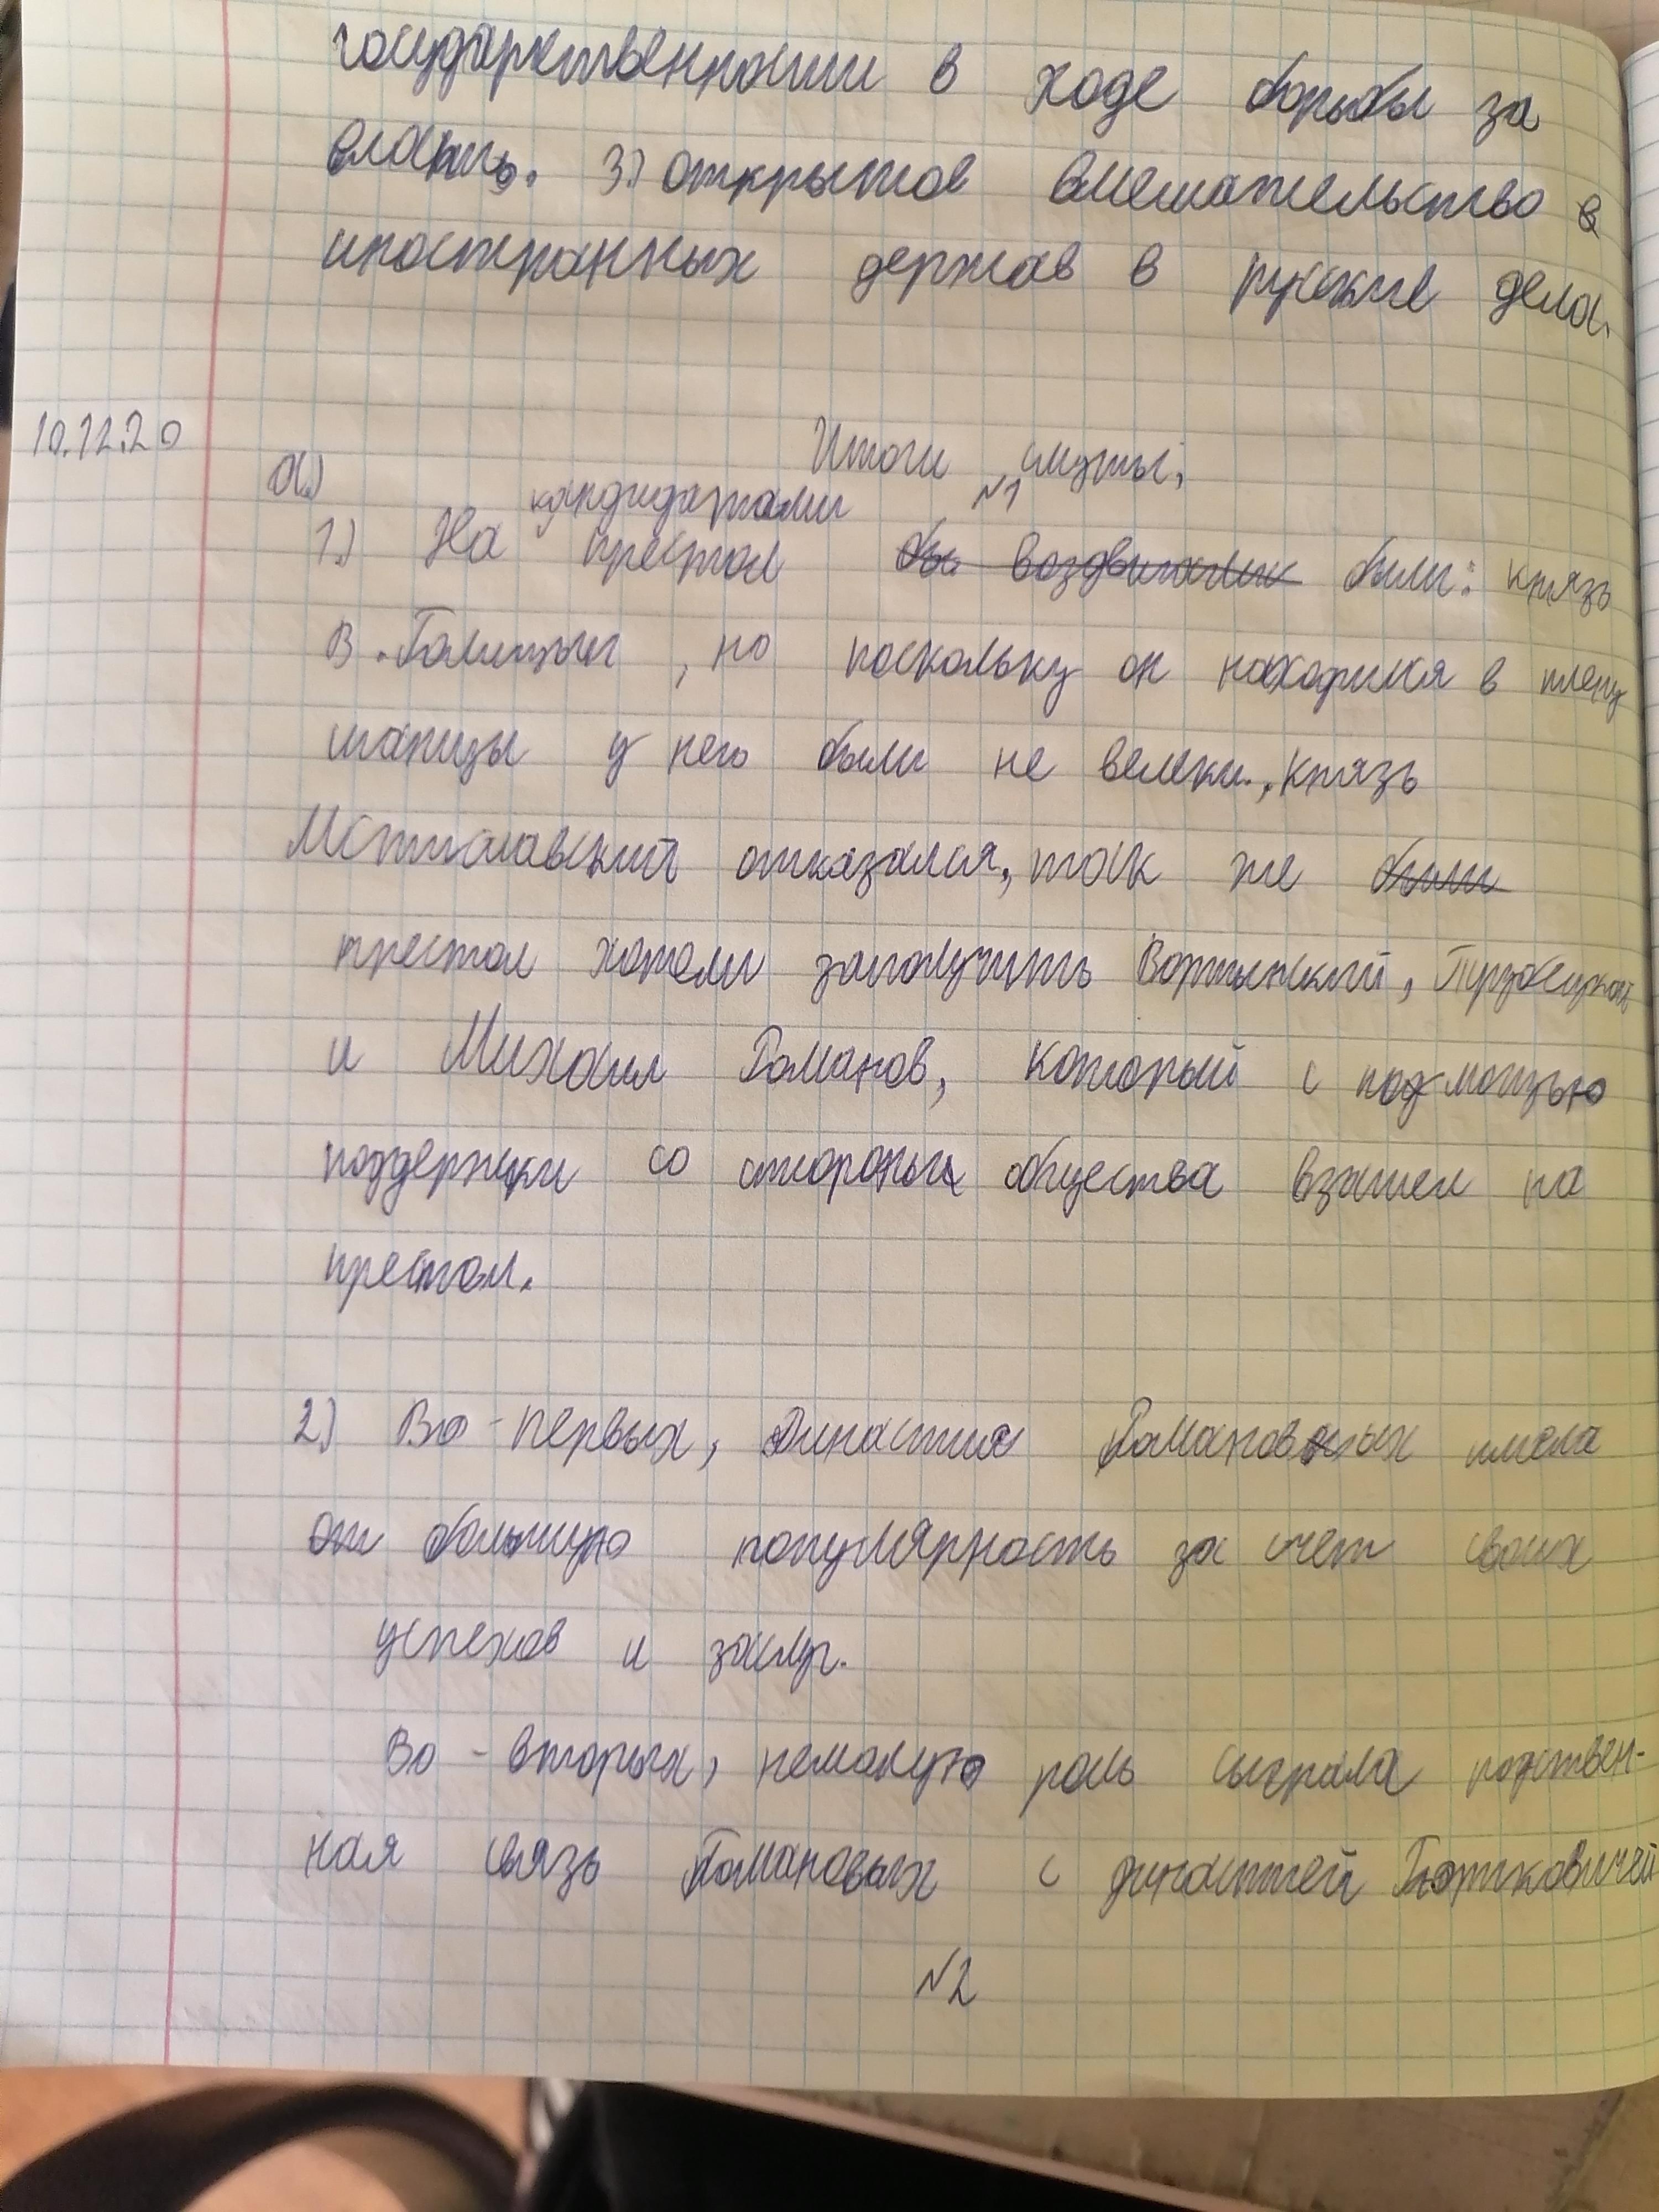 государственности в ходе борьбы за
власть. 3) открытое вмешательство в
иностранных держав в русские дела.
10.12.20
Итоги смуты.
а)
кандидатами №1
1.) На престол бы воздвигались были: князь
В. Голицын, но поскольку он находился в плену
шансы у него были не велеки., князь
Мстиславский отказался, так же были
престол хотели заполучить Воротынский,
и Михаил Романов, который с подмощью
поддержки со стороны общества взашел на
престол.
2) Во-первых, династия Романовых имела
большую популярность за счет своих
успехов и заслуг.
Во-вторых, немалую роль сыграла родствен-
ная связь Романовых с династией Рюриковичей
№2